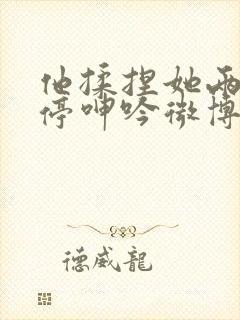 他揉捏她两
停呻吟微博
德威龙